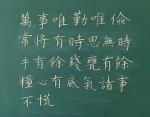 萬事唯勤唯儉
常將有時思無時
手有餘錢甕有餘
糧心有底氣諸事
不慌